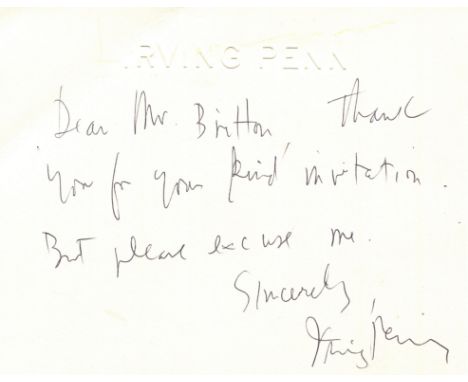 IRVING PENN
Dear Mr. Britton, Thank
you for your kind invitation.
But please excuse me.
Sincerely,
Irving Penn